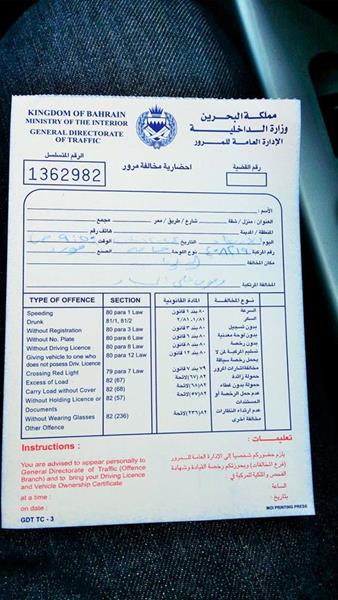 KINGDOM OF BAHRAIN
MINISTRY OF THE INTERIOR
GENERAL DIRECTORATE
OF TRAFFIC
مملكة البحرين
وزارة الداخلية
الإدارة العامة للمرور
الرقم المتسلسل
1362982
احضارية مخالفة مرور
رقم القضية
الأسم :
العنوان : منزل / شقة شارع / طريق / ممر مجمع
المنطقة / المدينة هاتف رقم
اليوم التاريخ الوقت
رقم المركبة نوع اللوحة الصنع
مكان المخالفة
المخالفة المرتكبة
TYPE OF OFFENCE SECTION المادة القانونية نوع المخالفة
Speeding 80 para 1 Law ٨٠ بند ١ قانون السرعة
Drunk 81/1, 81/2 ٨١/١، ٨١/٢ السكر
Without Registration 80 para 3 Law ٨٠ بند ٣ قانون بدون تسجيل
Without No. Plate 80 para 6 Law ٨٠ بند ٦ قانون بدون لوحة معدنية
Without Driving Licence 80 para 8 Law ٨٠ بند ٨ قانون بدون رخصة
Giving vehicle to one who 80 para 12 Law ٨٠ بند ١٢ قانون تسليم المركبة لمن لا
does not posess Driv. Licence يحمل رخصة سياقة
Crossing Red Light 79 para 7 Law ٧٩ بند ٧ قانون مخالفة اشارات المرور
Excess of Load 82 (67) ٨٢ (٦٧) لائحة حمولة زائدة
Carry Load without Cover 82 (68) ٨٢ (٦٨) لائحة حمولة بدون غطاء
Without Holding Licence or 82 (57) ٨٢ (٥٧) لائحة عدم حمل الرخصة أو
Documents المستندات
Without Wearing Glasses 82 (236) ٨٢ (٢٣٦) لائحة عدم ارتداء النظارات
Other Offence مخالفة أخرى
Instructions : تعليمات :
You are advised to appear personally to
General Directorate of Traffic (Offence
Branch) and to bring your Driving Licence
and Vehicle Ownership Certificate
at a time :
on date :
يلزم حضوركم شخصياً إلى الإدارة العامة للمرور
(فرع المخالفات) وبحوزتكم رخصة القيادة وشهادة
الفحص والملكية للمركبة في
الساعة :
بتاريخ :
GDT TC - 3
MOI PRINTING PRESS